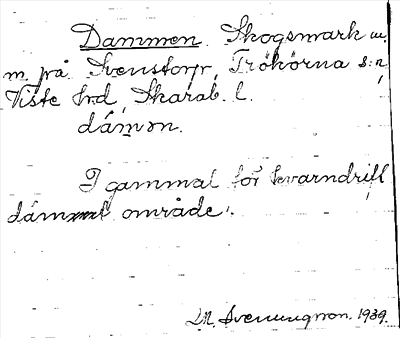 Dammen. Skogsmark m.
m. på Svenstorp, Trökörna s:n
Viste hrd, Skarab. l.
dámən.
I gammal för kvarndrift
dämmt område.
M. Svenungson. 1939.